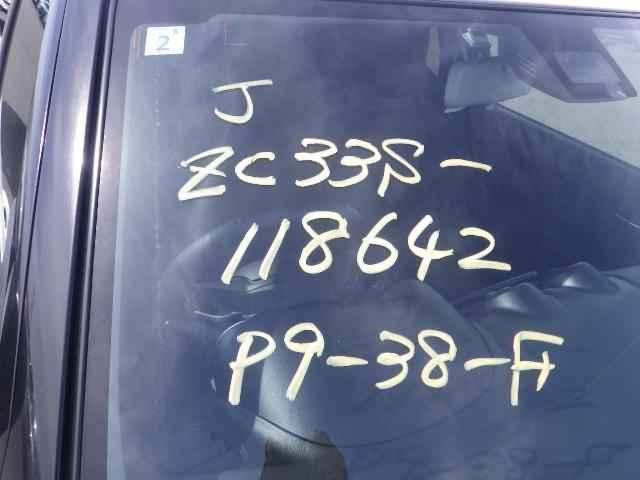 2
J
ZC33S-
118642
P9-38-F